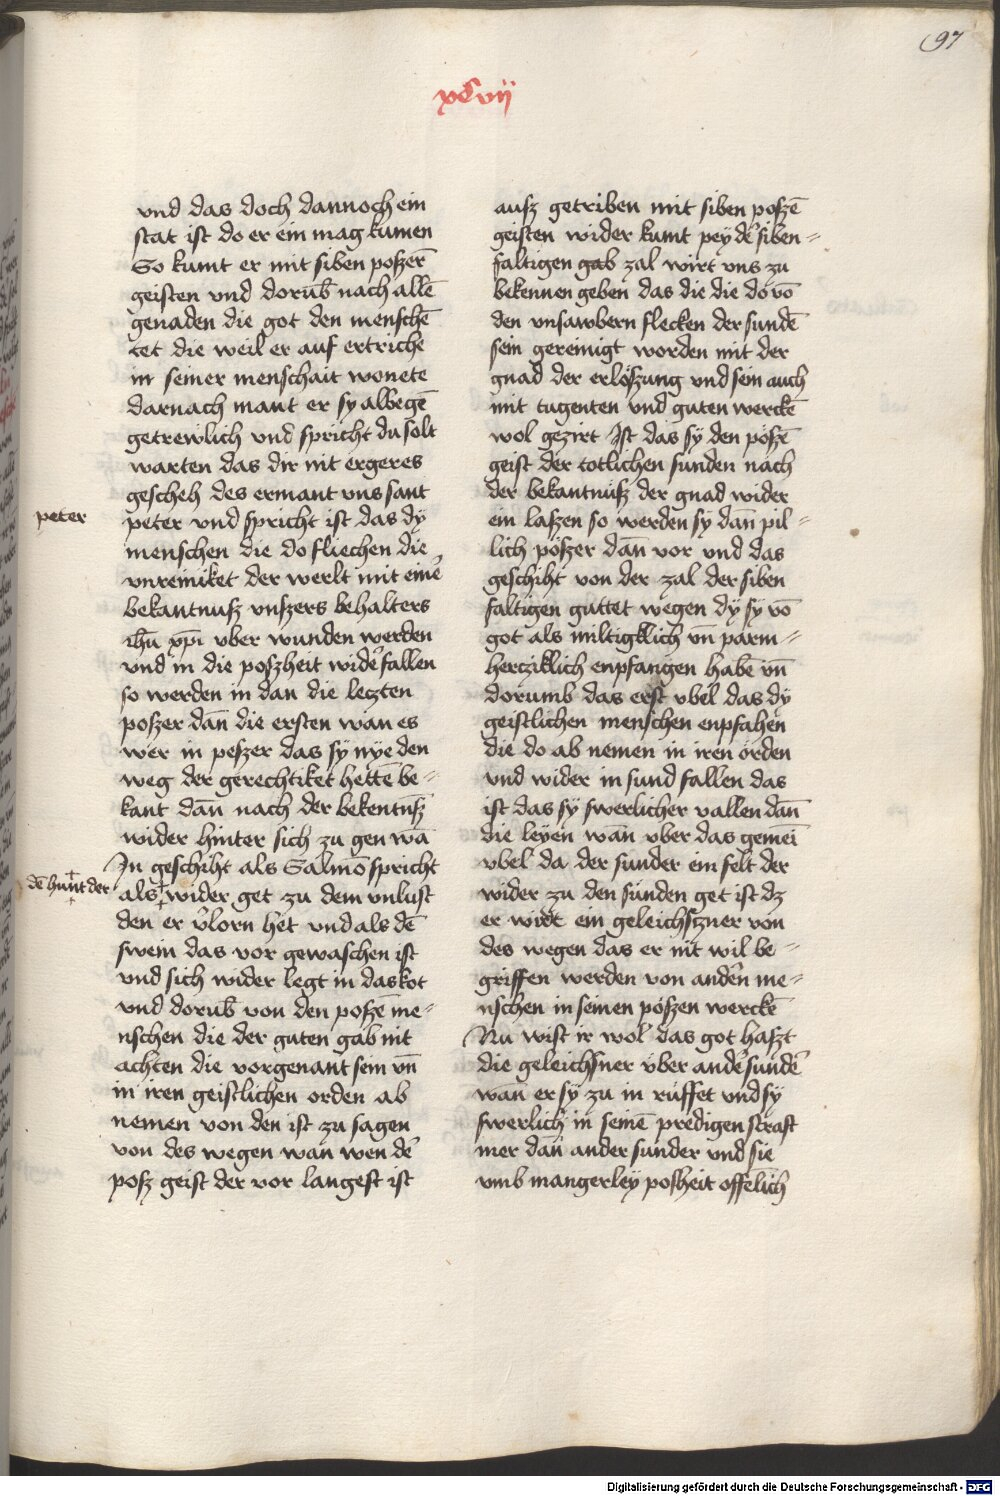 97
xcvii
vnd das doch dannoch ein
stat ist do er ein mag kumen
So kumt er mit siben poszer̄
geisten vnd dorūb nach allē
genaden die got den menschē
tet die weil er auf ertriche
in seiner menschait wonete
darnach mant er sy albegē
getrewlich vnd spricht du solt
warten das dir nit ergeres
gescheh des ermant vns sant
peter
peter vnd spricht ist das dÿ
menschen die do fliechen die
vnreiniket der werlt mit einē
bekantnusz vnszers behalters
ihū xp̄i vber wunden werden
vnd in die poszheit wideꝰ fallen
so werden in dan die leczten
poszer dan̄ die ersten wan es
wer in peszer das sy nÿe den
weg der gerechtiket hettē be-
kant dan̄ nach der bekentnūsz
wider hinter sich zu gen wā
In geschiht als Salmō spricht
dē hunt der
als wider get zu dem vnlust
den er v̄lorn het vnd als dē
swein das vor gewaschen ist
vnd sich wider legt in das kot
vnd dorūb von den poszē me-
nschen die der guten gab nit
achten die vorgenant sein vn̄
in iren geistlichen orden ab
nemen von den ist zu sagen
von des wegen wan wen deꝰ
posz geist der vor langest ist
ausz getriben mit siben poszē
geisten wider kumt peÿ deꝰ siben-
faltigen gab zal wirt vns zu
bekennen geben das die die do vō
den vnsawbern flecken der sundē
sein gereinigt worden mit der
gnad der erlöszung vnd sein auch
mit tugenten vnd guten werckē
wol gezirt Ist das sÿ den pöszē
geist der totlichen sunden nach
der bekantnüsz der gnad wider
ein laszen so werden sÿ dan̄ pil-
lich pöszer dan̄ vor vnd das
geschiht von der zal der siben
faltigen guttet wegen dÿ sy vō
got als miltigklich vn̄ parm-
hercziklich enpfangen habē vn̄
dorumb das erst vbel das dÿ
geistlichen menschen enpfahen
die do ab nemen in iren orden
vnd wider in sund fallen das
ist das sÿ swerlicher vallen dan̄
die leÿen wan vber das gemei̅
vbel da der sunder ein felt der
wider zu den sünden get ist dz
er wirt ein geleichszner von
des wegen das er nit wil be-
griffen werden von andeꝰn me-
nschen in seinen pöszen werckē
Nu wist ir wol das got haszt
die geleichsner über andeꝰ sundeꝰ
wan er sÿ zu in rüffet vnd sÿ
swerlich in seinē predigen straft
mer dan̄ ander sunder vnd sie
vmb mangerleÿ posheit offēlich
Digitalisierung gefördert durch die Deutsche Forschungsgemeinschaft - DFG